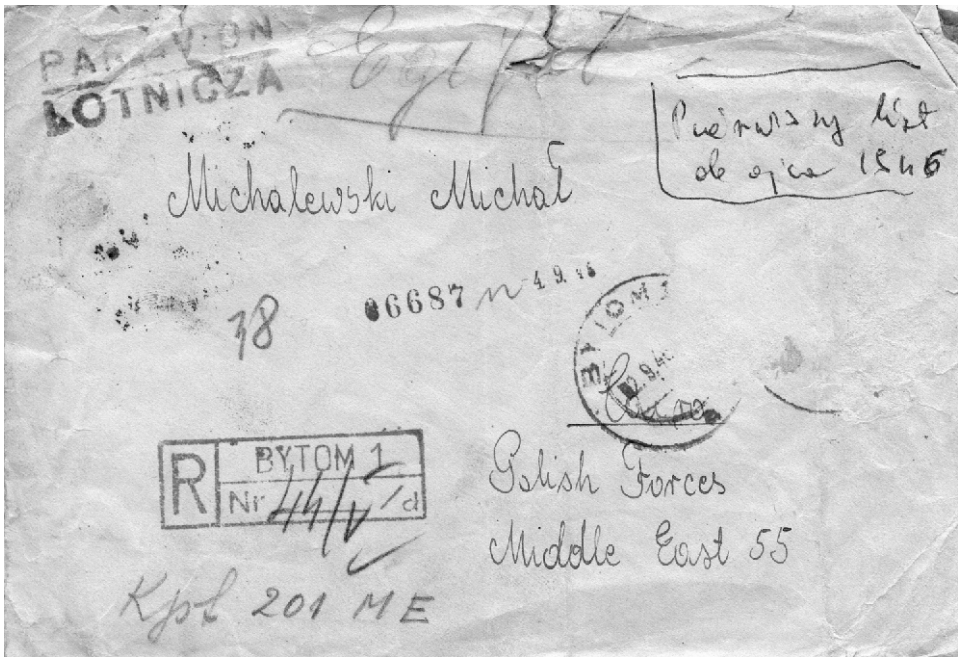 PAR AVION
LOTNICZA
Egipt
Pierwszy list
do ojca 1946
Michalewski Michał
18
06687 n 4 9. 46
BYTOM 1
2.9.46
Cairo
R BYTOM 1
Nr 44/V/d
Polish Forces
Middle East 55
Kpl 201 ME